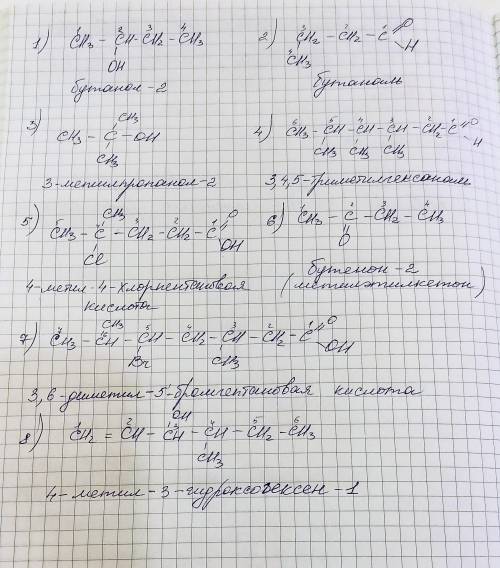 1) ¹CH₃ - ²CH - ³CH₂ - ⁴CH₃
OH
бутанол-2
2) ³CH₂ - ²CH₂ - ¹C =O
⁴CH₃ H
бутаналь
3) CH₃
CH₃ - C - OH
CH₃
3-метилпропанол-2
4) ⁶CH₃ - ⁵CH - ⁴CH - ³CH - ²CH₂ - ¹C =O
CH₃ CH₃ CH₃ H
3,4,5-триметилгексаналь
5) CH₃
⁵CH₃ - ⁴C - ³CH₂ - ²CH₂ - ¹C =O
Cl OH
4-метил-4-хлорпентановая
кислота
6) ¹CH₃ - ²C - ³CH₂ - ⁴CH₃
O
бутенон-2
(метилэтилкетон)
7) CH₃
⁷CH₃ - ⁶CH - ⁵CH - ⁴CH₂ - ³CH - ²CH₂ - ¹C =O
Br CH₃ OH
3,6-диметил-5-бромгептановая кислота
8) OH
¹CH₂ = ²CH - ³CH - ⁴CH - ⁵CH₂ - ⁶CH₃
CH₃
4-метил-3-гидроксогексен-1